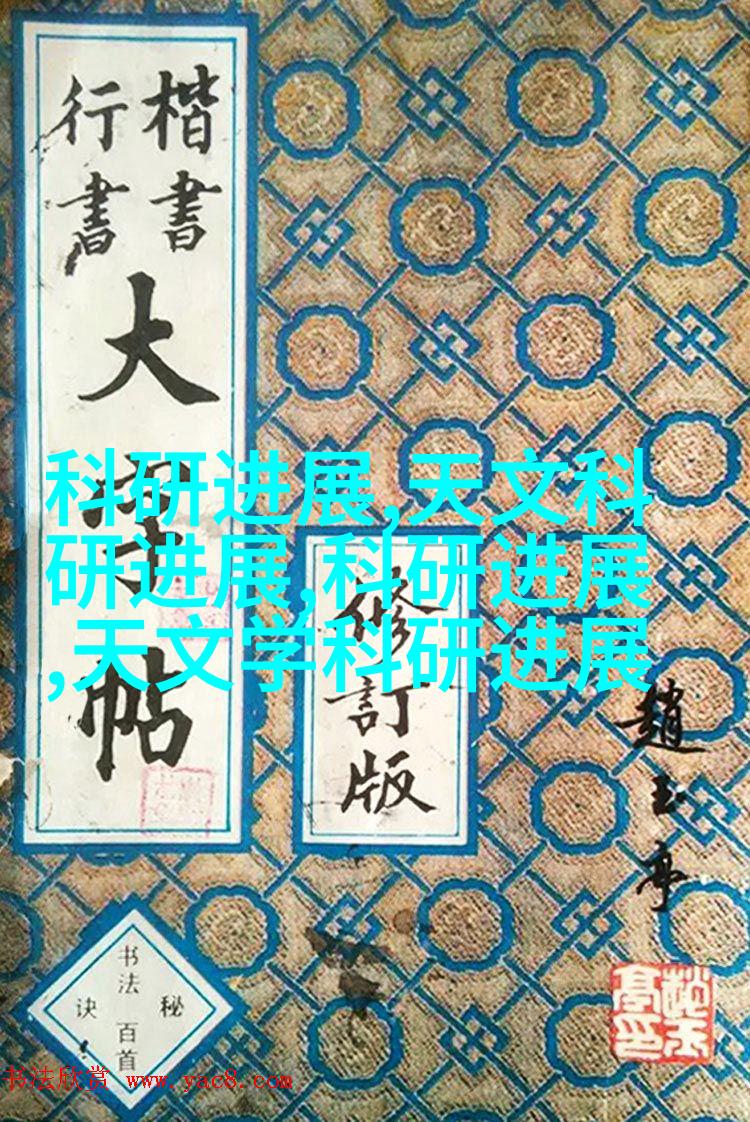 楷書
行書
大字帖
修訂版
趙玉亭
书法
百首
秘
诀
科研进展,天文科
研进展,科研进展
,天文学科研进展
书法欣赏 www.yac8.com